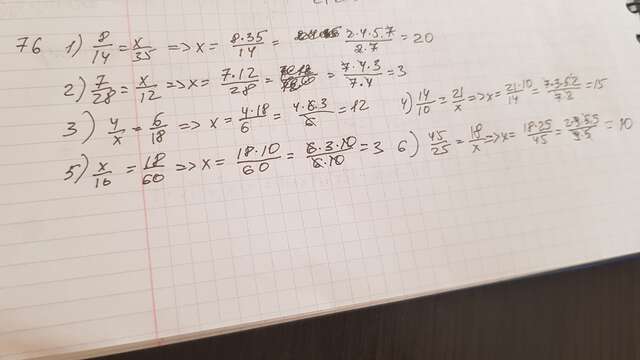 76 1) 8/14 = x/35 => x = 8·35/14 = 2·4·5·7/2·7 = 20
2) 7/28 = x/12 => x = 7·12/28 = 7·4·3/7·4 = 3
3) 4/x = 6/18 => x = 4·18/6 = 4·6·3/6 = 12
4) 14/10 = 21/x => x = 21·10/14 = 7·3·5·2/7·2 = 15
5) x/10 = 18/60 => x = 18·10/60 = 6·3·10/6·10 = 3
6) 45/25 = 18/x => x = 18·25/45 = = 10